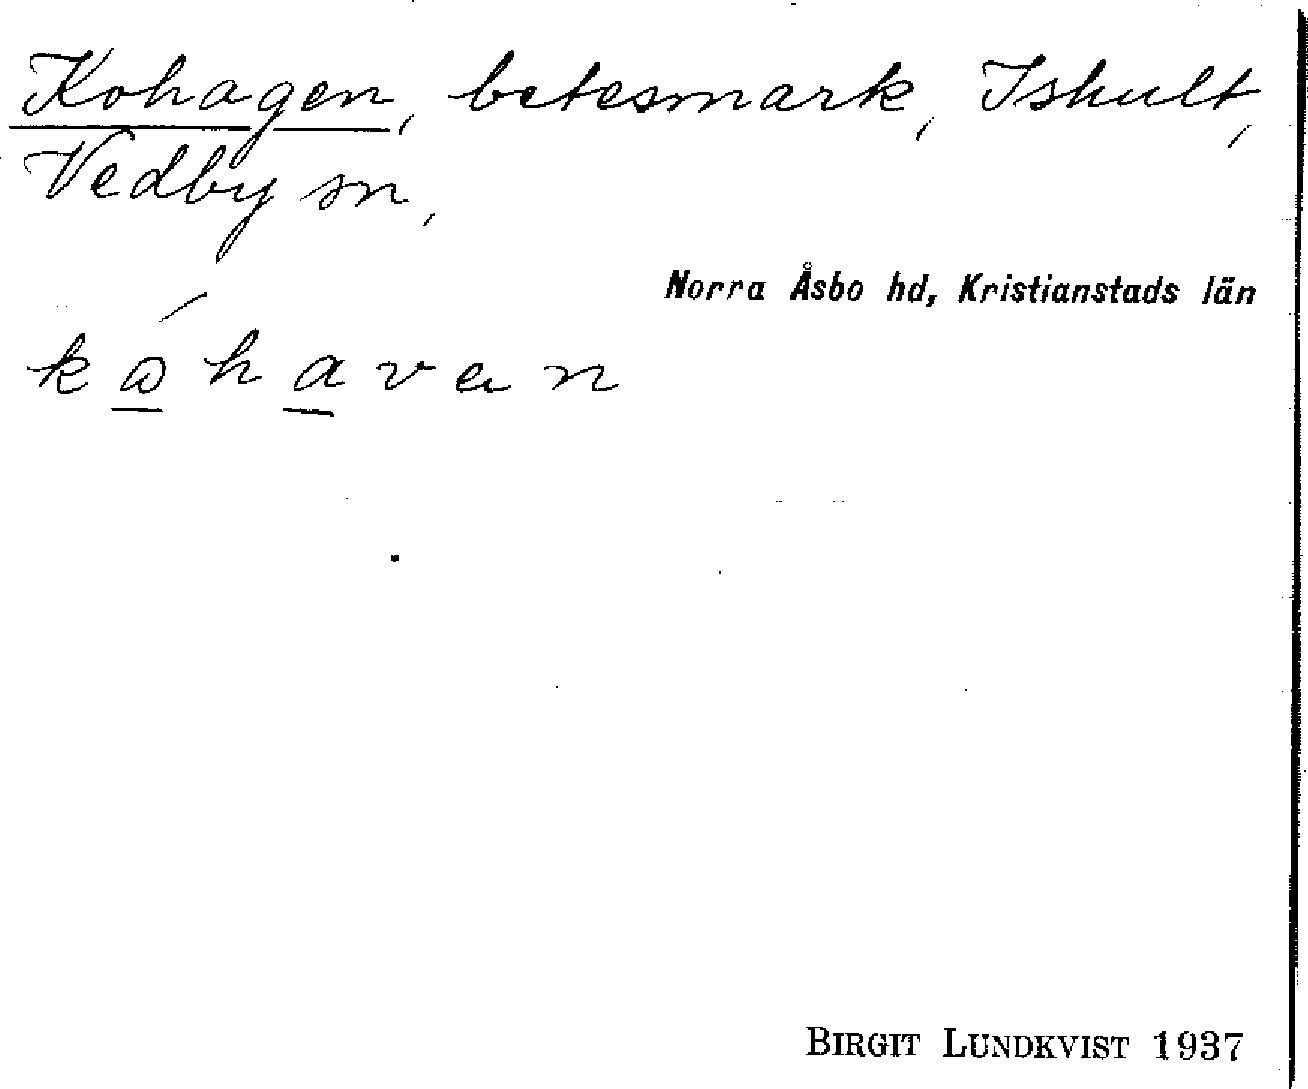 Kohagen, betesmark, Ishult,
Vedby sn,
Norra Åsbo hd, Kristianstads län
BIRGIT LUNDKVIST 1937